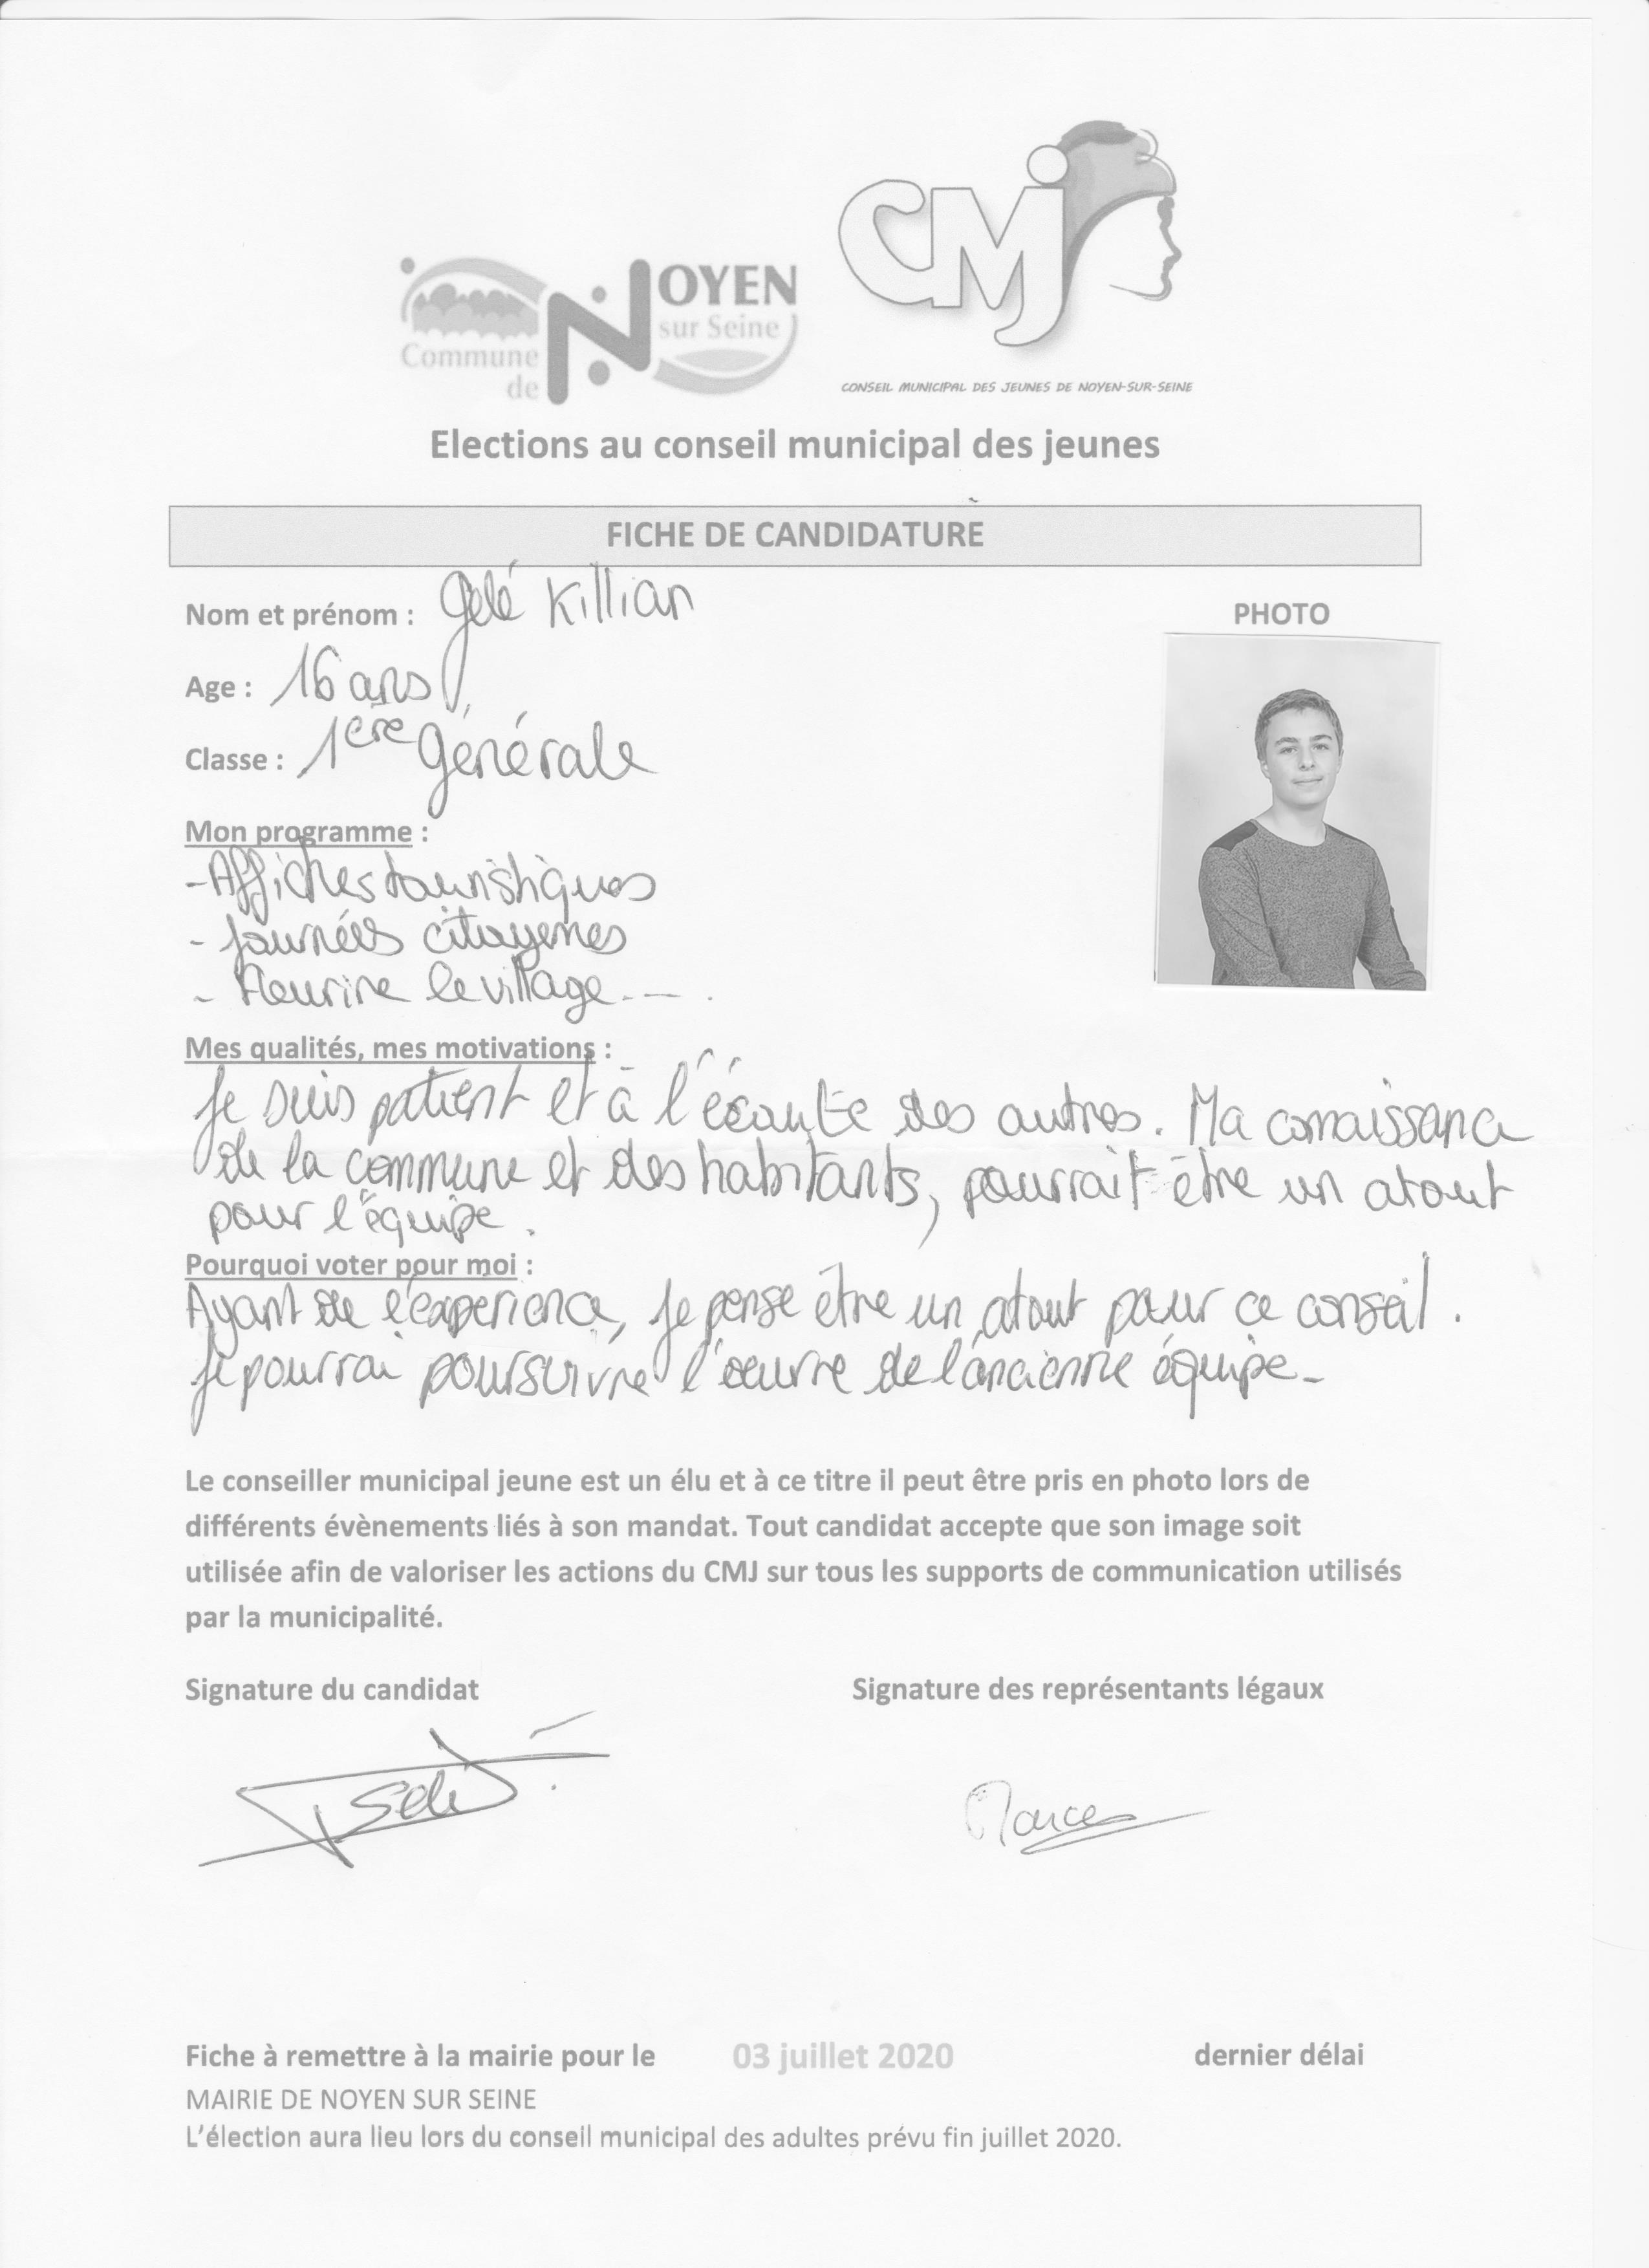 CMJ
NOYEN
sur Seine
Commune
de
CONSEIL MUNICIPAL DES JEUNES DE NOYEN-SUR-SEINE
Elections au conseil municipal des jeunes
FICHE DE CANDIDATURE
Nom et prénom : Gelé Killian
PHOTO
Age : 16 ans
Classe : 1ère générale
Mon programme :
- Affiches touristiques
- Journées citoyennes
- Fleurire le village ---.
Mes qualités, mes motivations :
Je suis patient et à l'écoute des autres. Ma connaissance
de la commune et des habitants, pourrait être un atout
pour l'équipe.
Pourquoi voter pour moi :
Ayant de l'expérience, je pense être un atout pour ce conseil.
Je pourrai poursuivre l'oeuvre de l'ancienne équipe-
Le conseiller municipal jeune est un élu et à ce titre il peut être pris en photo lors de
différents évènements liés à son mandat. Tout candidat accepte que son image soit
utilisée afin de valoriser les actions du CMJ sur tous les supports de communication utilisés
par la municipalité.
Signature du candidat
Signature des représentants légaux
Fiche à remettre à la mairie pour le 03 juillet 2020 dernier délai
MAIRIE DE NOYEN SUR SEINE
L'élection aura lieu lors du conseil municipal des adultes prévu fin juillet 2020.